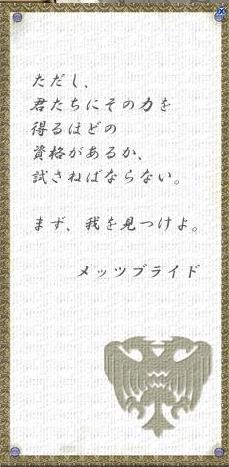 ただし、
君たちにその力を
得るほどの
資格があるか、
試さねばならない。
まず、我を見つけよ。
メッツブライド